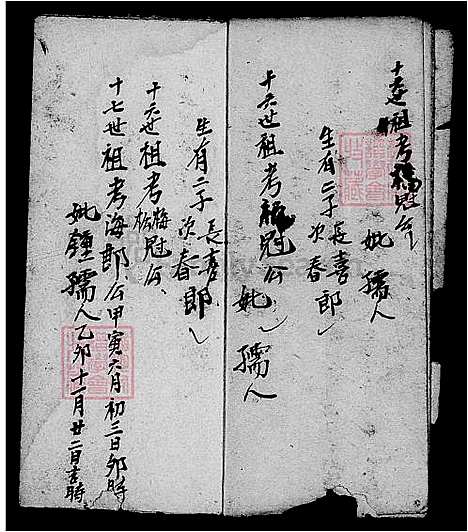 十五世祖考福冠公
妣孺人
生有二子長喜
次春郎
十六世祖考松冠公妣孺人
生有二子長喜
次春郎
十六世祖考梅冠公
松
十七世祖考海郎公甲寅六月初三日卯時
妣鍾孺人乙卯十一月廿二月吉時